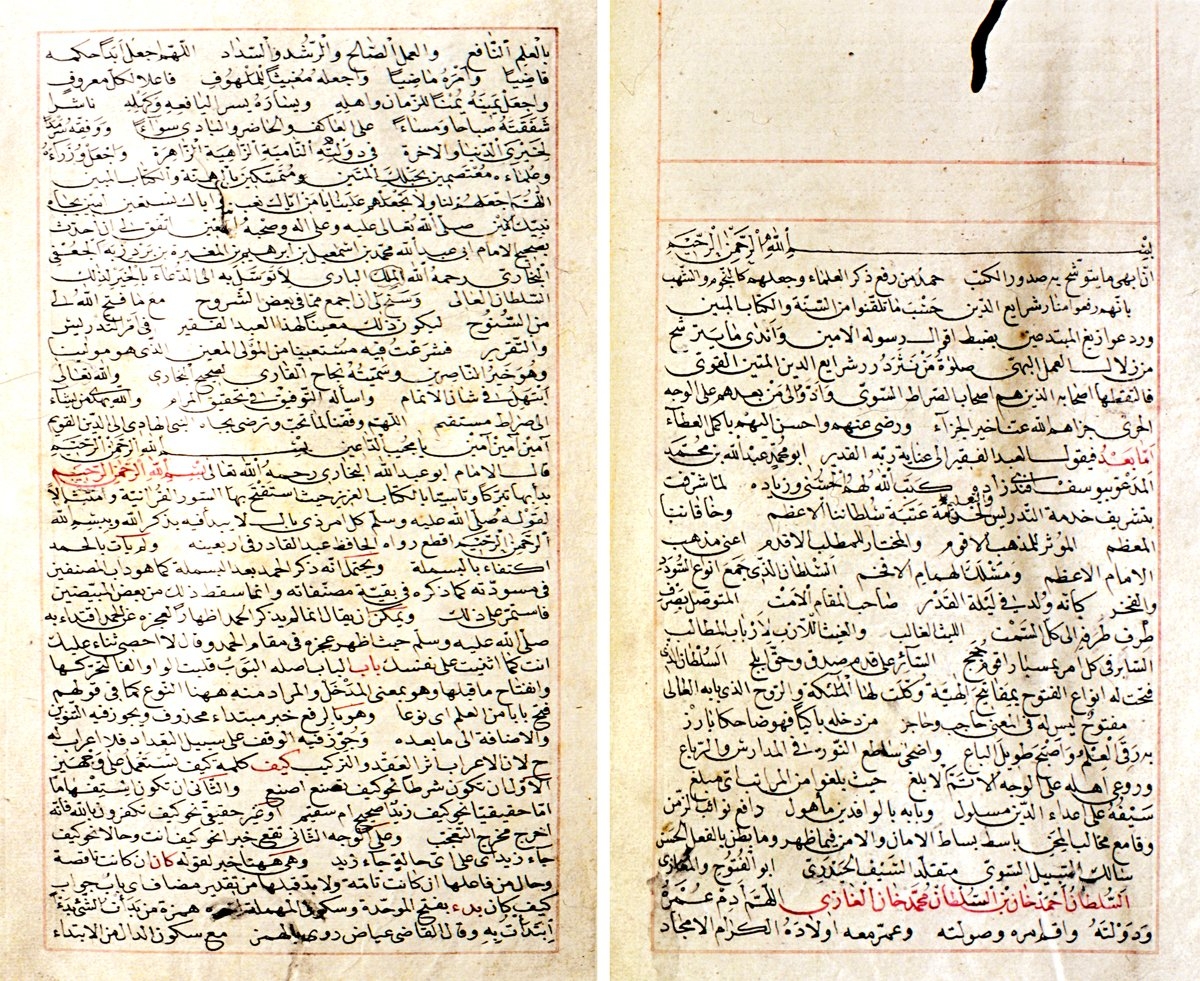 بسم الله الرحمن الرحيم
ان ابهى ما يتوشح به صدور الكتب حمد من رفع ذكر العلماء وجعلهم كالنجوم والشهب
بانهم رفعوا منار شرايع الدين حسب ما تلقنوا من السنة والكتاب المبين
وردعوا زيغ المبتدعين بضبط اقوال رسوله الامين واندى ما يترشح
من زلال العمل البهي صلوة من نثر درر شرايع الدين المتين القوي
فالتقطها اصحابه الذين هم اصحاب الصراط السوي وادوا الى من بعدهم على الوجه
الحري جزاهم الله عنا خير الجزاء ورضي عنهم واحسن اليهم باكمل العطاء
اما بعد فيقول العبد الفقير الى عناية ربه القدير ابو محمد عبد الله بن محمد
المدعو بيوسف افندي زاده كتب الله لهم الحسنى وزياده لما شرفت
بتشريف خدمة التدريس لخدمة عتبة سلطاننا الاعظم وخاقاننا
المعظم المؤثر للمذهب الاقوم والمختار للمطلب الاقدم اعني مذهب
الامام الاعظم ومسلك الهمام الافخم السلطان الذي جمع انواع السودد
والفخر كانه ولد في ليلة القدر صاحب المقام الامت المتوصل بصرف
طرف طرفه الى كل السمت الليث الغالب والغيث للارب لارباب المطالب
السابر في كل امر بمسبار اقوم نهج السائر على قدم صدق وحق ابلج السلطان الذي
فتحت له انواع الفتوح بمفاتيح الهية وكلت لها الملئكة والروح الذي بابه العالى
مفتوح ليس له في المعنى حاجب وحاجز من دخله باكيا فهو ضاحكا بارز
بدر في العلم واصبح طويل الباع واضحى ساطع النور في المدارس والرباع
وروعي اهله على الوجه الاتم الابلغ حيث بلغوا من المراتب اي مبلغ
سيفه على اعداء الدين مسلول وبابه بالوافدين ماهول دافع نوائب الزمن
وقامع مخالب المحن باسط بساط الامال والامن فيما ظهر وما بطن بالفعل الحسن
سالك السبيل السوي متقلد السيف الحيدري ابو الفتوح والمغازي
السلطان احمد خان بن السلطان محمد خان الغازي اللهم ادم عمره
ودولته واقم امره وصولته وعمر معه اولاده الكرام الامجاد
بالعلم النافع والعمل الصالح والرشد والسداد اللهم اجعل ابدا حكمه
قاضيا وامره ماضيا واجعله مغيثا للملهوف فاعلا لكل معروف
واجعل يمينه يمنا للزمان واهله ويساره يسر اليافعه وكهله ناشرا
شفقته صباحا ومساء على العاكف والحاضر والبادي سواء ووفقه
لخيري الدنيا والاخرة في دولته النامية الزاهية الزاهرة واجعل وزراءه
وعلماءه معتصمين بحبلك المتين ومتمسكين والكتاب المبين
اللهم اجعلهم لنا ولا تجعلهم علينا يا من اياك نعبد واياك نستعين امين بجاه
نبيك الامين صلى الله تعالى عليه وعلى اله وصحبه اجمعين اتفق لي ان احدث
بصحيح الامام ابي عبد الله محمد بن اسمعيل بن ابراهيم بن المغيرة بن بردزبه الجعفي
البخاري رحمة الله الملك الباري لاتوسل به الى الدعاء بالخير لذلك
السلطان العالى وسنح لي ان اجمع مما في بعض الشروح مع ما فتح الله لي
من السنوح ليكون ذلك معينا لهذا العبد الفقير في امر التدريس
والتقرير فشرعت فيه مستعينا من المولى المعين الذي هو مولينا
وهو خير الناصرين وسميته نجاح القاري لصحيح البخاري والله تعالى
ابتهل في شان الاتمام واسأله التوفيق في تحقيق المرام والله يهدي من يشاء
الى صراط مستقيم اللهم وفقنا لما تحب وترضى بجاه النبي الهادي الى الدين القويم
امين امين امين يا مجيب الداعين بسم الله الرحمن الرحيم
قال الامام ابو عبد الله البخاري رحمه الله تعالى بسم الله الرحمن الرحيم
بدأ بها تبركا وتاسيا بالكتاب العزيز حيث استفتح بها السور القرآنية وامتثالا
لقوله صلى الله عليه وسلم كل امر ذي بال لا يبدأ فيه بذكر الله وببسم الله
الرحمن الرحيم اقطع رواه الحافظ عبد القادر في اربعينه ولم يأت بالحمد
اكتفاء بالبسملة ويحتمل انه ذكر الحمد بعد البسملة كما هو داب المصنفين
في مسودته كما ذكره في بقية مصنفاته وانما سقط ذلك من بعض المبيضين
فاستمر على ذلك ويمكن ان يقال انما لم يذكر الحمد اظهارا لعجزه عن الحمد اقتداء به
صلى الله عليه وسلم حيث اظهر عجزه في مقام الحمد وقال لا احصي ثناء عليك
انت كما اثنيت على نفسك باب الباب اصله البوب قلبت الواو الفا لتحركها
وانفتاح ما قبلها وهو بمعنى المدخل والمراد منه ههنا النوع كما في قولهم
فتح بابا من العلم اي نوعا وهو بالرفع خبر مبتداء محذوف ويجوز فيه التنوين
والاضافة الى ما بعده وجوز فيه الوقف على سبيل التعداد فلا اعراب له
ح لان الاعراب اثر العقد والتركيب كيف كلمة كيف تستعمل على وجهين
الاول ان تكون شرطا نحو كيف تصنع اصنع والثاني ان تكون استفهاما
اما حقيقيا نحو كيف زيد اصحيح ام سقيم او غير حقيقي نحو كيف تكفرون بالله فانه
اخرج مخرج التعجب وعلى الوجه الثاني تقع خبرا نحو كيف انت وحالا نحو كيف
جاء زيد اي على اي حالة جاء زيد وهي ههنا خبر لقوله كان ان كانت ناقصة
وحال من فاعلها ان كانت تامة ولا بد قبلها من تقدير مضاف اي باب جواب
كيف كان بدء بفتح الموحدة وسكون المهملة اخره همزة من بدأت الشيء
ابتدأت به وقال القاضي عياض روي بالهمز مع سكون الدال من الابتداء